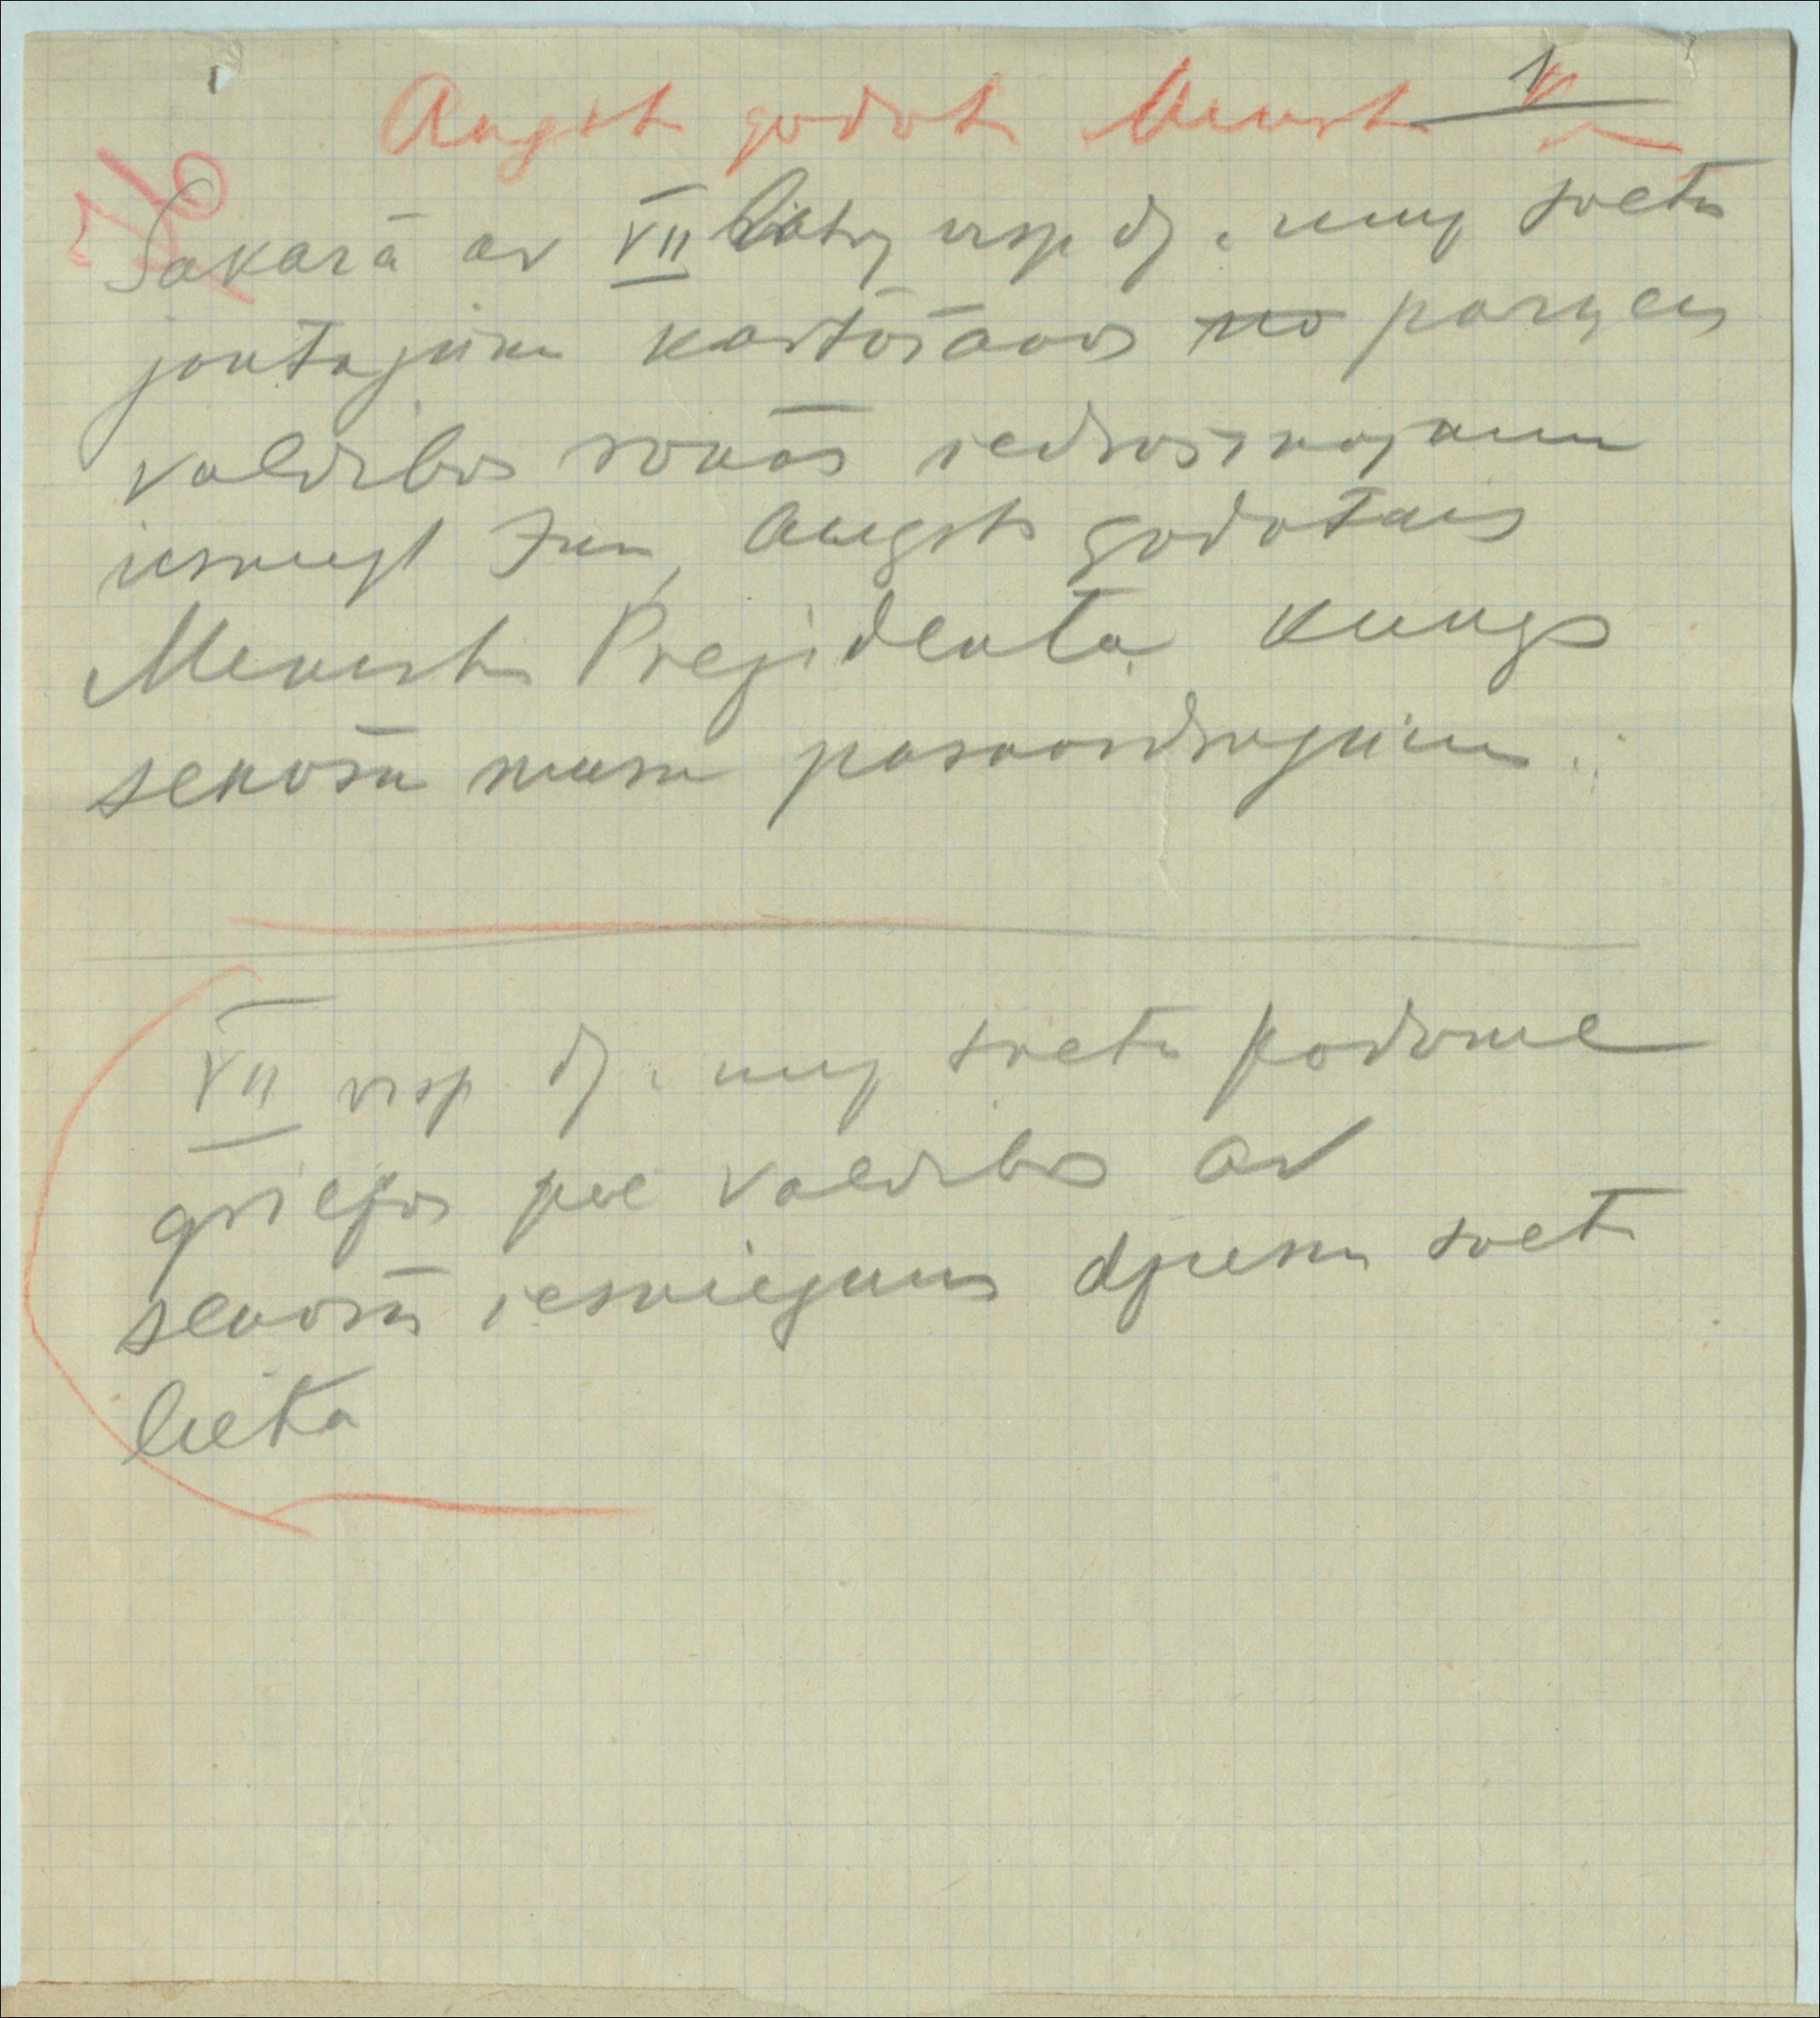 Augsti godāts Ministr
1
76
Sakarā ar VII Latvj visp dz. un mūz svētku
jautājuma kārtošanas no pārejas
valdības rokās iedrošinājamies
iesniegt Jums, Augsti godātais
Ministr Prezidenta kungs
sekošu musu paskaidrojumu:
VII visp dz. un mūz svētku padome
griežas pie valdības ar
sekošu iesniegumu dziesmu svētk
lietā